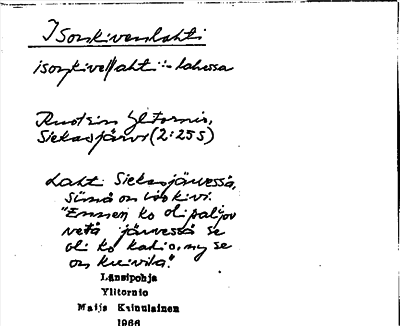 Isonkivenlahti
isonkivellahti :- lahessa
Ruotsin Ylitornio,
Siekasjärvi (2:255)
Lahti Siekasjärvessä,
siinä on iso kivi.
"Ennen ko oli paljov
vettä järvessä se
oli ko kario, ny se
on, kuivila."
Länsipohja
Ylitornio
Maija Kainulainen
1966